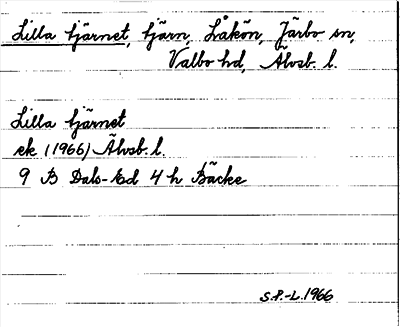 Lilla tjärnet, tjärn, Låkön, Järbo sn,
Valbo hd, Älvsb. l.
Lilla tjärnet
ek (1966) Älvsb. l.
9 B Dals-Ed 4 h Bäcke
S.P.-L. 1966